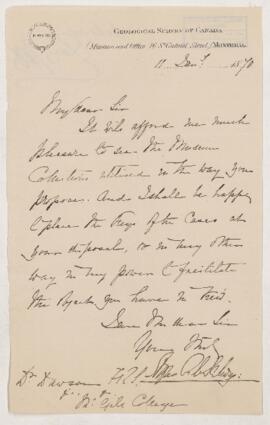 GEOLOGICAL SURVEY OF CANADA
(Museum and Office 76 St Gabriel Street,) MONTREAL
11 Jany. 1870
My dear Sir
It will afford me much
pleasure to see the Museum
Collections utilised in the way you
propose. And I shall be happy
to place the Keys of the Cases at
your disposal, or in any other
way in my power to facilitate
the object you have in view.
I am My dear Sir
Yours truly
Dr Dawson F.R.S.
McGill College